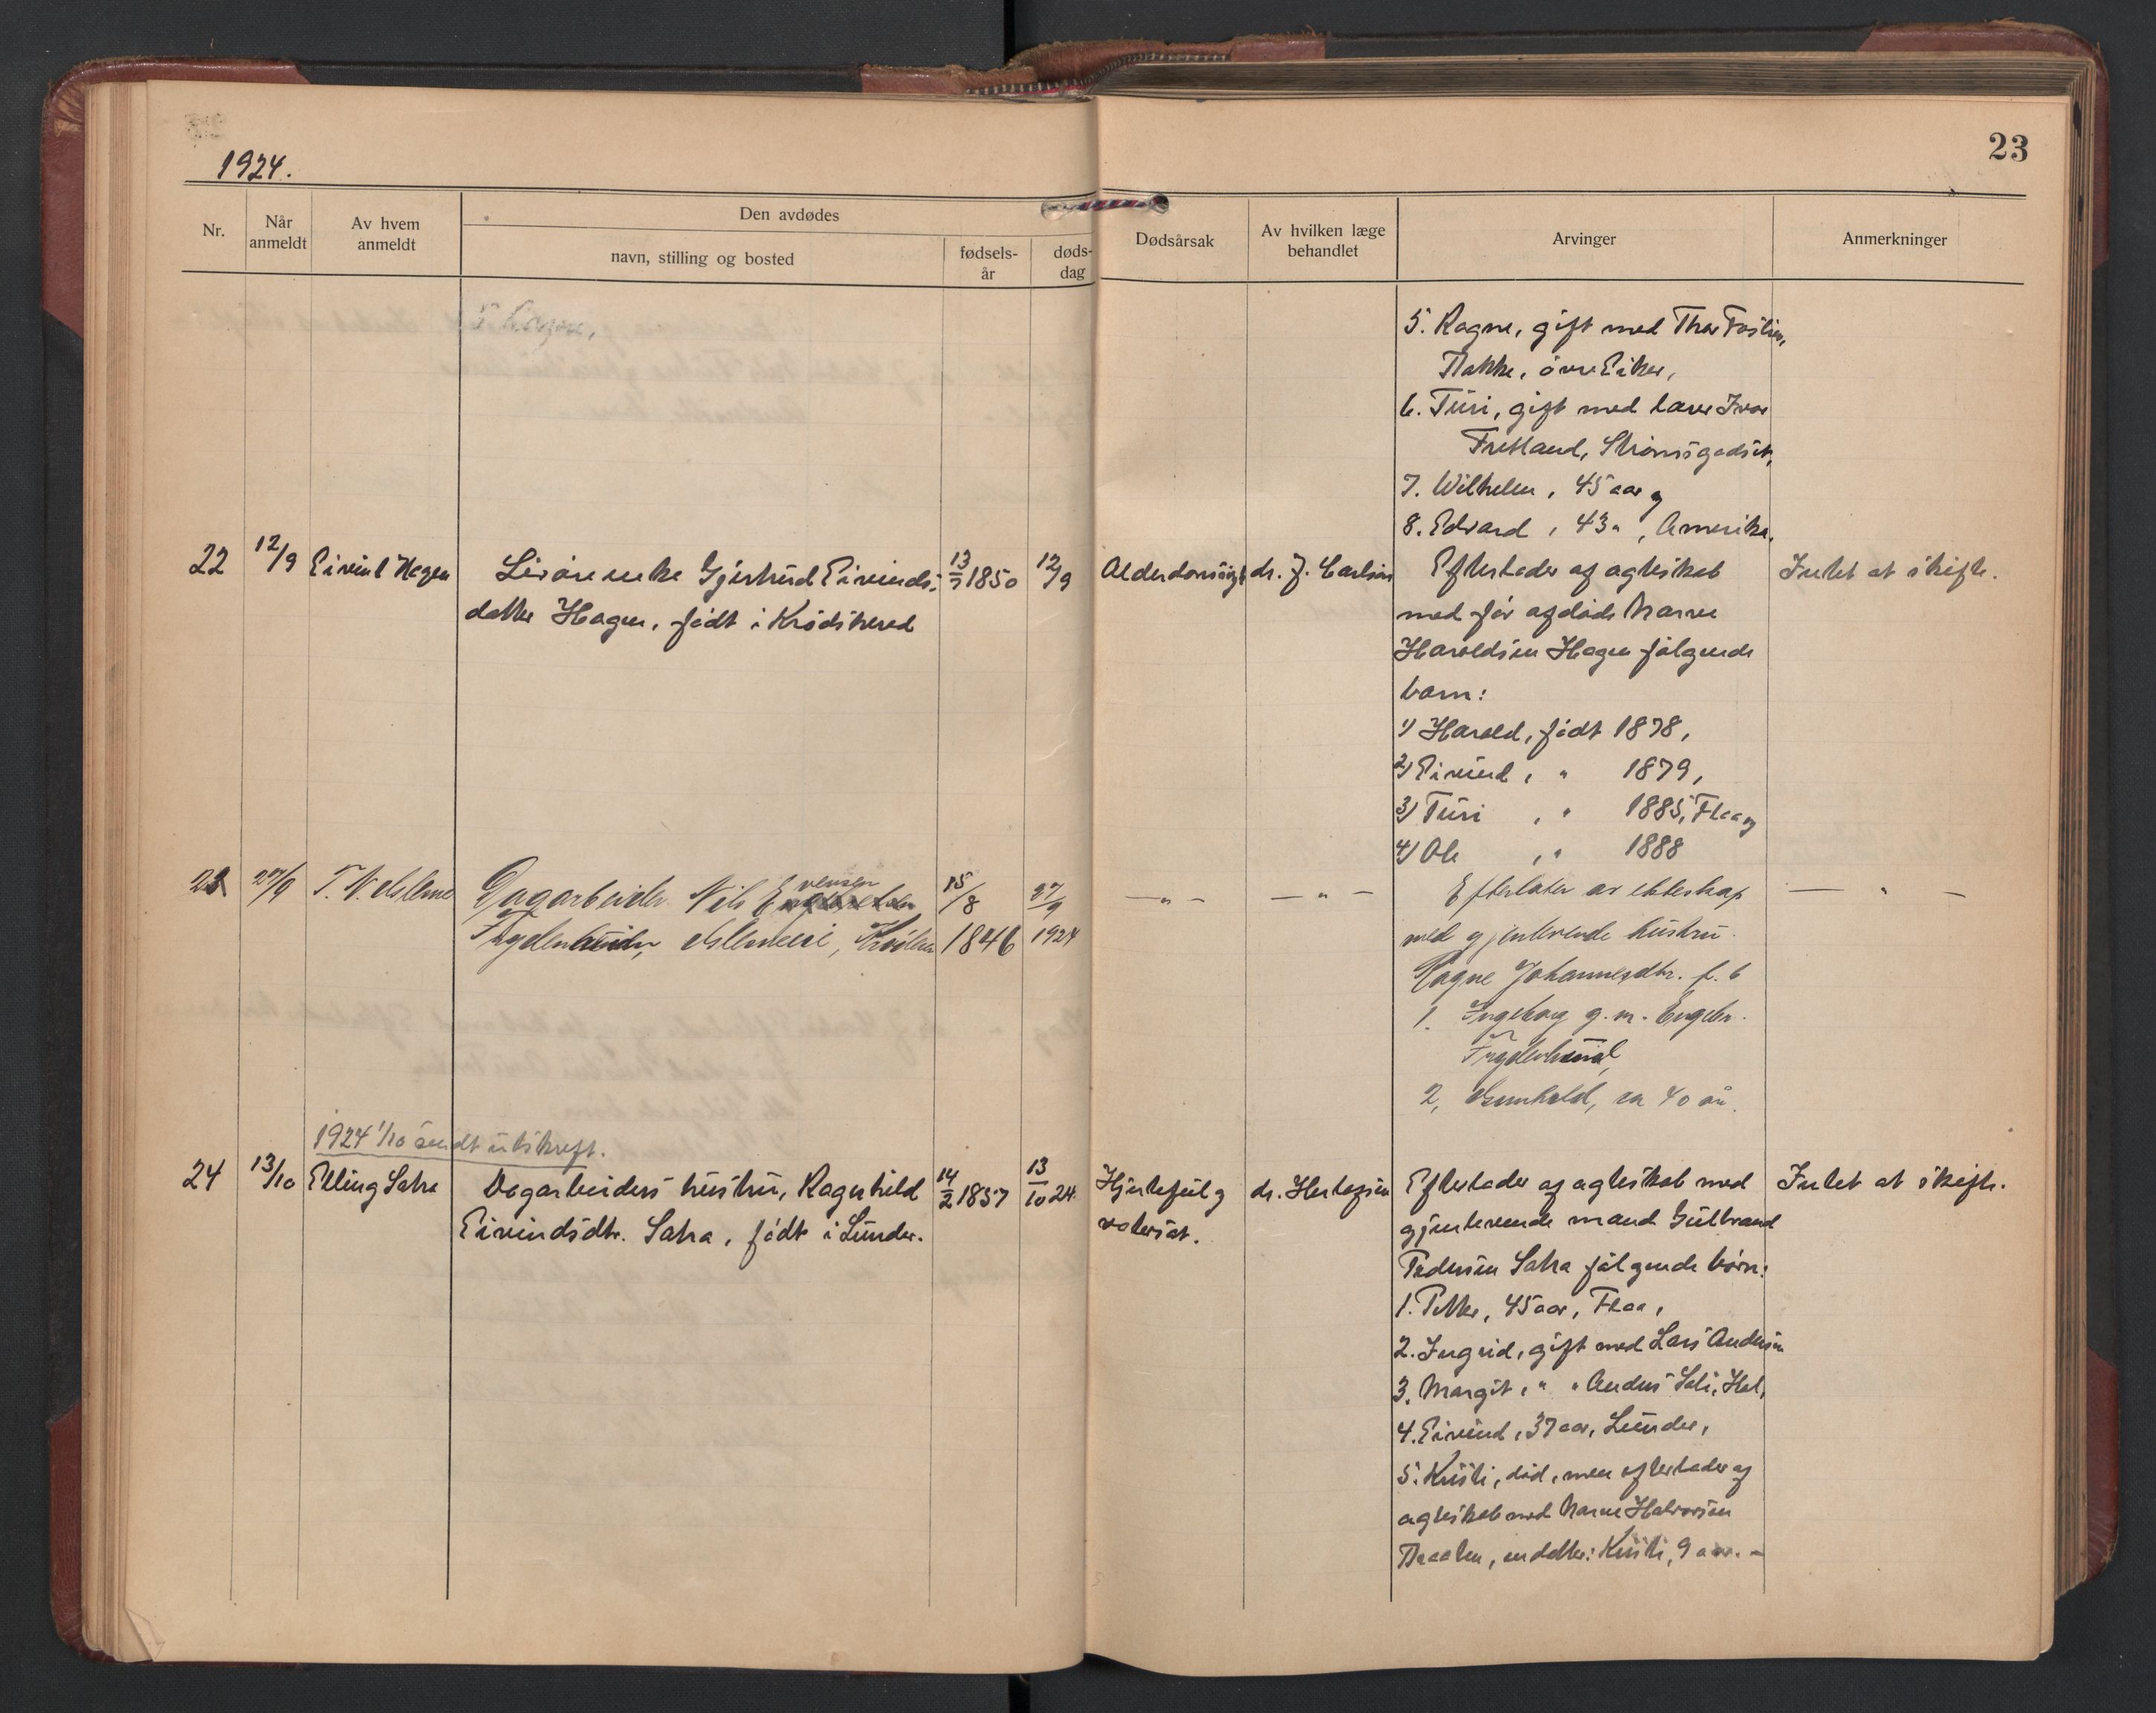 23
1924.
Nr.
Når anmeldt
Av hvem anmeldt
Den avdødes
navn, stilling og bosted
fødsels-år
døds-dag
Dødsårsak
Av hvilken læge behandlet
Arvinger
Anmerkninger
5. Ragne,
5. Ragne, gift med Thor
øvre Eiker,
6. Turi, gift med lærer Ivar
Strømsgodset,
7. Wilhelm, 45 aar og
8. Edvard, 43 ", Amerika.
22 12/9 Eivind Hagen
Livøreenke Gjertrud Eivinds-
datter Hagen, født i Krødsherred
13/7 1850 12/9
Alderdomssvgh. dr. J. Carlsen
Efterlader af ægteskab
med før afdøde Narve
Haroldsen Hagen følgende
børn:
1) Harold, født 1878,
2) Eivind, " 1879,
3) Turi, " 1885, Flaa og
4) Ole, " 1888
Intet at skifte.
23 27/9 T. N.
Dagarbeider Nils Evensen
Frydenlund,
15/8 1846 27/9 1924
— " — — " —
Efterlater av ekteskap
med gjenlevende hustru
Ragne Johannesdtr. f. b
1. Ingeborg g. m. Engebr.
Frydenlund,
2, Gunhild, ca 40 år.
— " —
1924 1/10 sendt utskrift.
24 13/10 Elling Satra
Dagarbeiders hustru, Ragnhild
Eivindsdtr. Satra, født i Lunder.
14/2 1857 13/10 24
Hjertefeil og
vatersot.
dr. Hertzgsen
Efterlader af ægteskab med
gjenlevende mand Gulbrand
Pedersen Satra følgende børn:
1. Petter, 45 aar, Flaa,
2. Ingrid, gift med Lars Andersen
3. Margit, " " Anders
4. Eivind, 37 aar, Lunder,
5. Kristi, død, men efterlader af
ægteskab med Narve Halvorsen
en datter: Kristi, 9 aar. —
Intet at skifte.